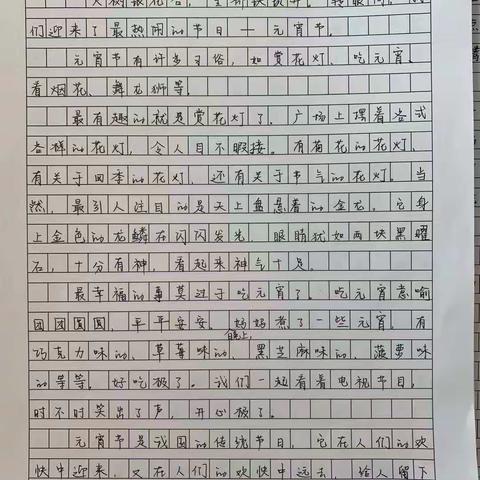 火树银花合，星桥铁锁开。转眼间，
们迎来了最热闹的节日——元宵节。
元宵节有许多习俗，如赏花灯、吃元宵、
看烟花、舞龙狮等。
最有趣的就是赏花灯了，广场上摆着各式
各样的花灯，令人目不暇接。有荷花的花灯、
有关于四季的花灯，还有关于节气的花灯。当
然，最引人注目的是天上盘悬着的金龙，它身
上金色的龙鳞在闪闪发光，眼睛犹如两块黑曜
石，十分有神，看起来神气十足。
最幸福的事莫过于吃元宵了。吃元宵意喻
团团圆圆，平平安安。妈妈煮了一些元宵。有
巧克力味的、草莓味的、黑芝麻味的、菠萝味
的等等。好吃极了。晚上，我们一起看着电视节目，
时不时笑出了声，开心极了。
元宵节是我国的传统节日，它在人们的欢
快中迎来，又在人们的欢快中远去，给人留下